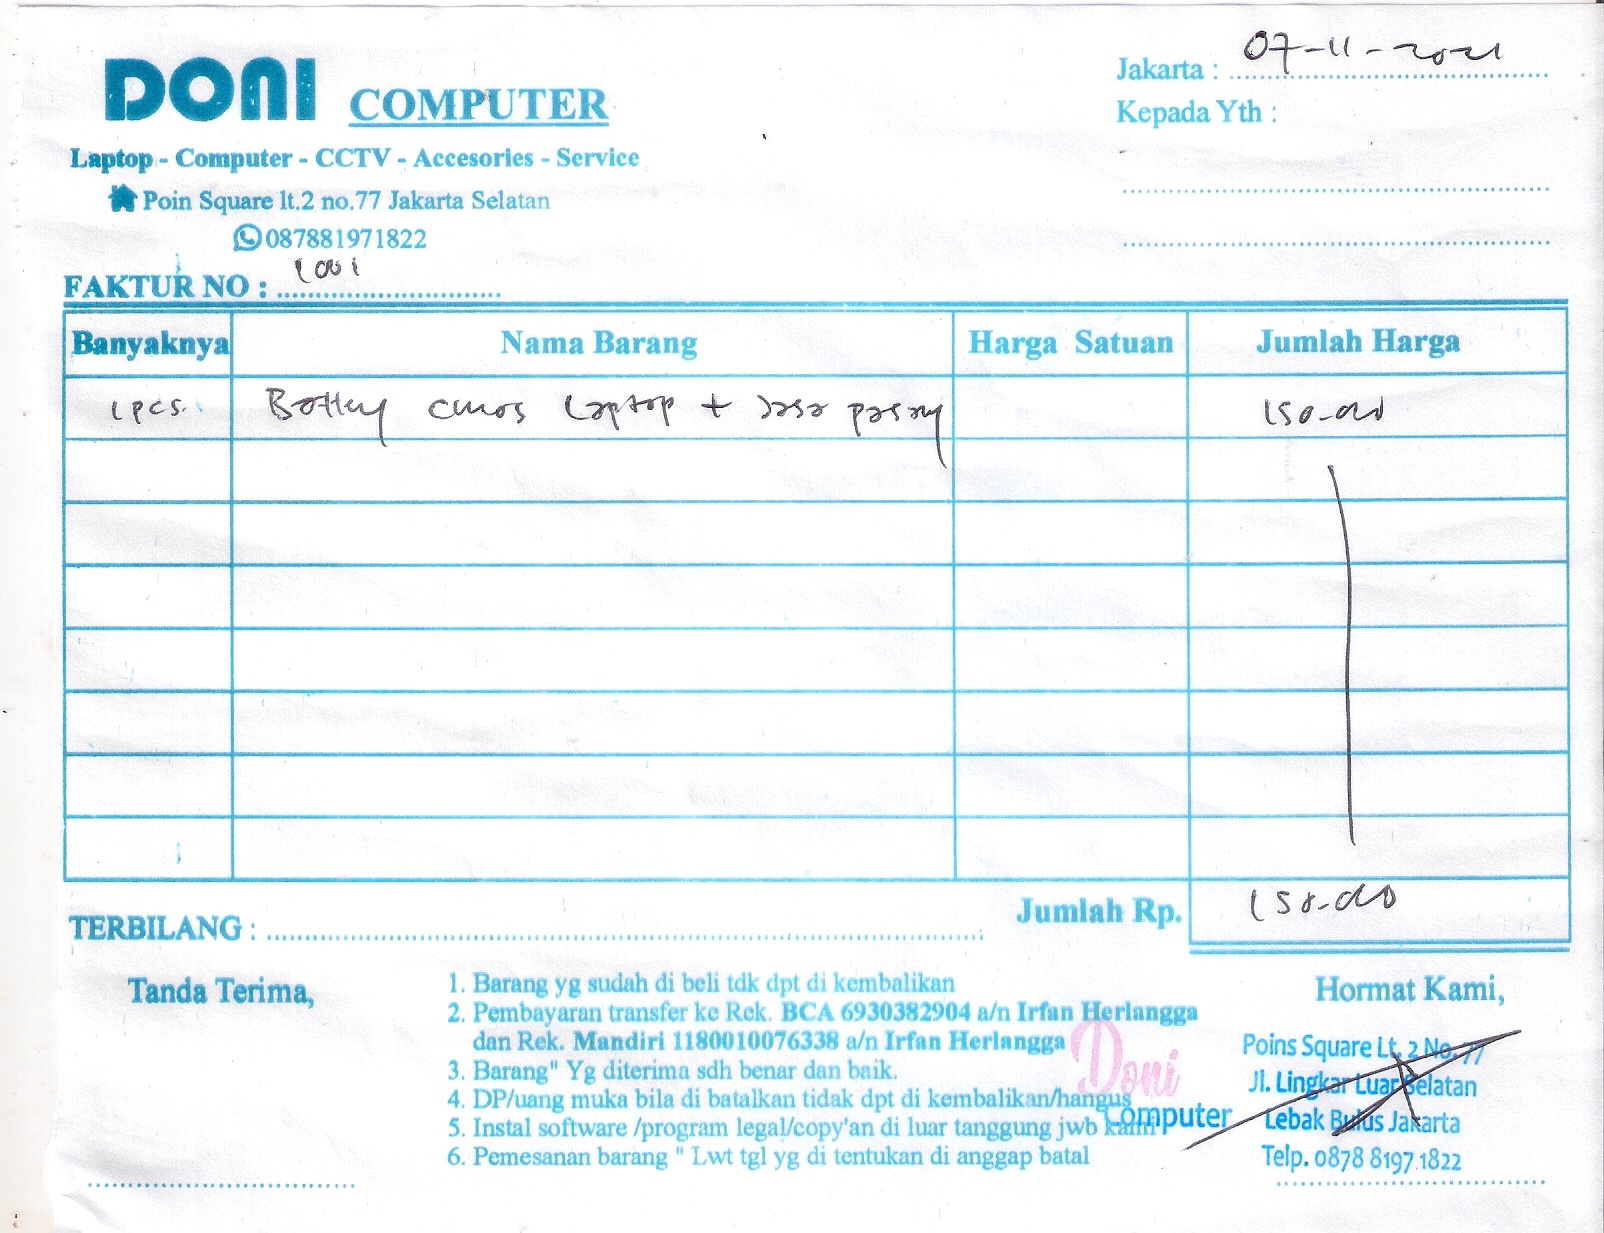 DONI COMPUTER
Laptop - Computer - CCTV - Accesories - Service
Poin Square lt.2 no.77 Jakarta Selatan
087881971822
Jakarta : 07-11-2021
Kepada Yth :
FAKTUR NO : 1001
Banyaknya Nama Barang Harga Satuan Jumlah Harga
1 pcs. Battery cmos Laptop + Jasa pasang 150.000
Jumlah Rp. 150.000
TERBILANG :
Tanda Terima,
1. Barang yg sudah di beli tdk dpt di kembalikan
2. Pembayaran transfer ke Rek. BCA 6930382904 a/n Irfan Herlangga
dan Rek. Mandiri 1180010076338 a/n Irfan Herlangga
3. Barang" Yg diterima sdh benar dan baik.
4. DP/uang muka bila di batalkan tidak dpt di kembalikan/hangus
5. Instal software /program legal/copy'an di luar tanggung jwb kami
6. Pemesanan barang " Lwt tgl yg di tentukan di anggap batal
Hormat Kami,
Doni
Computer
Poins Square Lt. 2 No. 77
Jl. Lingkar Luar Selatan
Lebak Bulus Jakarta
Telp. 0878 8197 1822